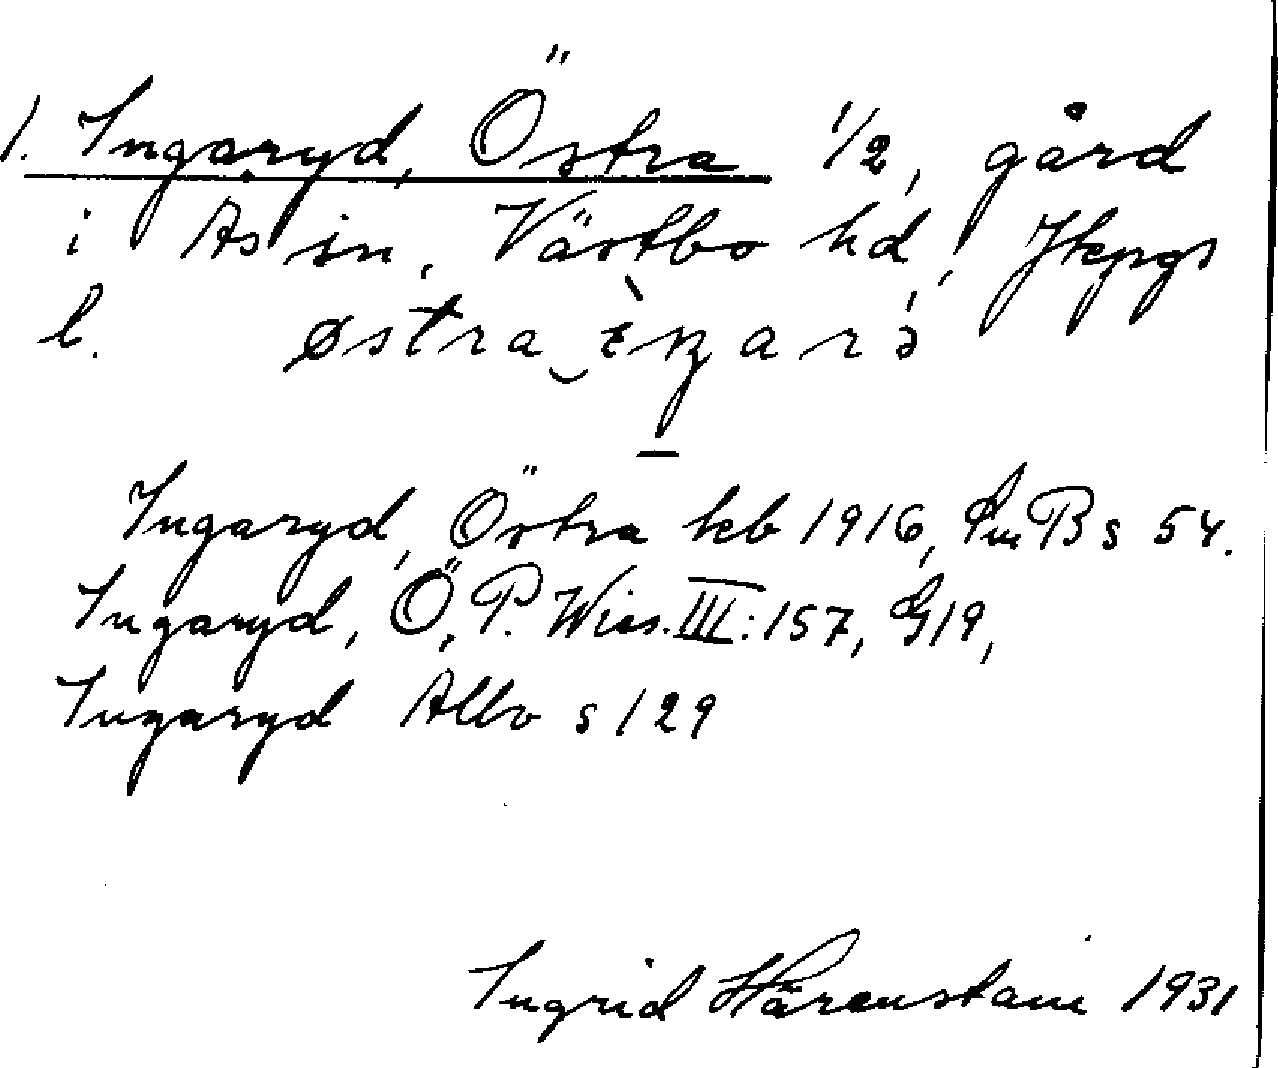 1. Ingaryd, Östra 1/2, gård
i Ås sn, Västbo hd, Jkpgs
l. østra‿ɪ̀ŋarə́
Ingaryd, Östra kb 1916, SmB s 54.
Ingaryd, Ö, P. Wies. III:157, G19,
Ingaryd Allvo s 129
Ingrid Härenstam 1931